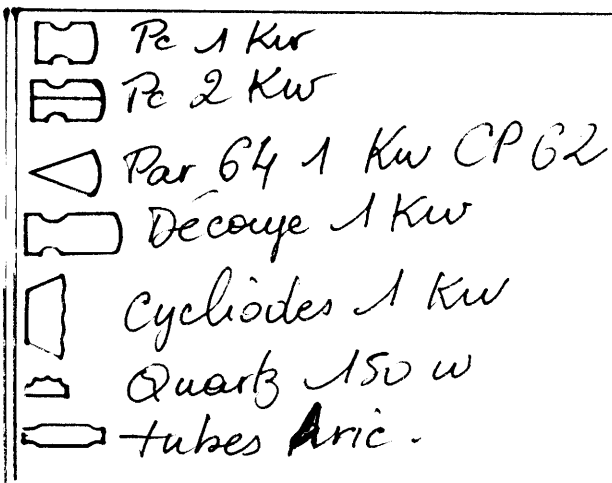 Pc 1 Kw
Pc 2 Kw
Par 64 1 Kw CP 62
Découpe 1 Kw
Cycliodes 1 Kw
Quartz 150 w
tubes Aric.